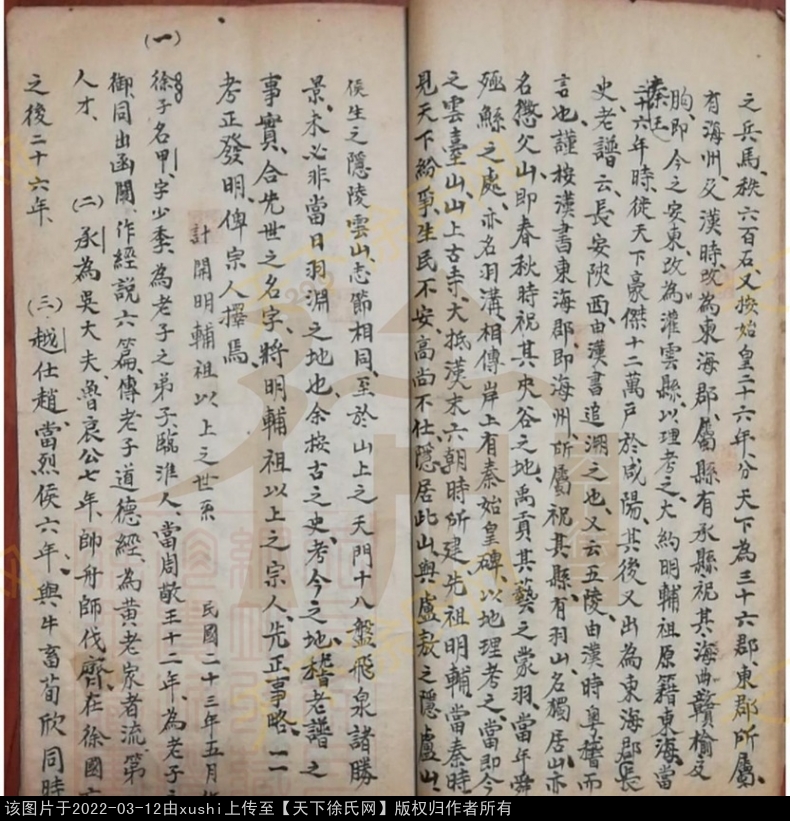 之兵馬、秩六百石、又按始皇二十六年、分天下為三十六郡、東郡所屬、
有海州、及漢時、改為東海郡、屬縣有承縣、祝其、海曲、贛榆、及
朐、即今之安東、改為灌雲縣、以理考之、大約明輔祖原籍東海、當
秦廷二十六年時、徙天下豪傑十二萬戶於咸陽、其後又出為東海郡長
史、老譜云、長安陝西、由漢書追溯之也、又云五陵、由漢時粵稽而
言也、謹按漢書東海郡、即海州所屬祝其縣、有羽山、名獨居山、亦
名懲父山、即春秋時祝其夾谷之地、禹貢其藝之蒙羽、當年舜
殛鯀之處、亦名羽溝、相傳岸上有秦始皇碑、以地理考之、當即今
之雲臺山、山上古寺、大抵漢末六朝時所建、先祖明輔、當秦時
見天下紛爭、生民不安、高尚不仕、隱居此山、與盧敖之隱盧山、
侯生之隱陵雲山、志節相同、至於山上之天門十八盤飛泉諸勝
景、未必非當日羽淵之地也、余按古之史、考今之地、稽老譜之
事實、合先世之名字、將明輔祖以上之宗人、先正事略、一一
考正發明、俾宗人擇焉、
計開明輔祖以上之世系 民國二十三年五月
(一)
徐子名甲、字少季、為老子之弟子、臨淮人、當周敬王十二年、為老子之
御、同出函關、作經說六篇、傳老子道德經、為黃老家者流、第
人才、 (二)承為吳大夫、魯哀公七年、帥舟師伐齊、在徐國
之後二十六年、 (三)越仕趙、當烈侯六年、與牛畜荀欣同時
该图片于2022-03-12由xushi上传至【天下徐氏网】版权归作者所有